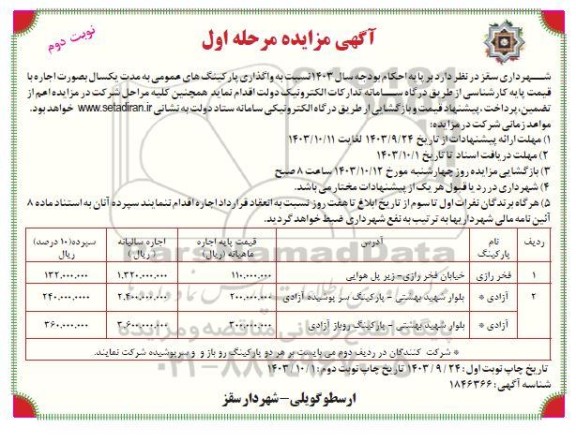 آگهی مزایده مرحله اول
نوبت دوم
شهرداری سقز در نظر دارد بر پایه احکام بودجه سال ۱۴۰۳ نسبت به واگذاری پارکینگ های عمومی به مدت یکسال بصورت اجاره با
قیمت پایه کارشناسی از طریق درگاه سامانه تدارکات الکترونیک دولت اقدام نماید همچنین کلیه مراحل شرکت در مزایده اهم از
تضمین، پرداخت، پیشنهاد قیمت و بازگشایی از طریق درگاه الکترونیکی سامانه ستاد دولت به نشانی www.setadiran.ir خواهد بود.
مواعد زمانی شرکت در مزایده:
۱) مهلت ارائه پیشنهادات از تاریخ ۱۴۰۳/۹/۲۴ لغایت ۱۴۰۳/۱۰/۱۱
۲) مهلت دریافت اسناد تا تاریخ ۱۴۰۳/۱۰/۱
۳) بازگشایی مزایده روز چهارشنبه مورخ ۱۴۰۳/۱۰/۱۲ ساعت ۸ صبح
۴) شهرداری در رد یا قبول هر یک از پیشنهادات مختار می باشد.
۵) هرگاه برندگان نفرات اول تا سوم از تاریخ ابلاغ تا هفت روز نسبت به انعقاد قرارداد اجاره اقدام ننمایند سپرده آنان به استناد ماده ۸
آئین نامه مالی شهرداریها به ترتیب به نفع شهرداری ضبط خواهد گردید.
ردیف نام پارکینگ آدرس قیمت پایه اجاره ماهیانه (ریال) اجاره سالیانه (ریال) سپرده(۱۰ درصد) (ریال)
۱ فخر رازی خیابان فخر رازی- زیر پل هوایی ۱۱۰,۰۰۰,۰۰۰ ۱,۳۲۰,۰۰۰,۰۰۰ ۱۳۲,۰۰۰,۰۰۰
۲ آزادی * بلوار شهید بهشتی - پارکینگ سر پوشیده آزادی ۲۰۰,۰۰۰,۰۰۰ ۲,۴۰۰,۰۰۰,۰۰۰ ۲۴۰,۰۰۰,۰۰۰
آزادی * بلوار شهید بهشتی - پارکینگ روباز آزادی ۳۰۰,۰۰۰,۰۰۰ ۳,۶۰۰,۰۰۰,۰۰۰ ۳۶۰,۰۰۰,۰۰۰
* شرکت کنندگان در ردیف دوم می بایست بر هر دو پارکینگ رو باز و و سرپوشیده شرکت نمایند.
تاریخ چاپ نوبت اول: ۱۴۰۳/۹/۲۴ تاریخ چاپ نوبت دوم: ۱۴۰۳/۱۰/۱
شناسه آگهی: ۱۸۴۶۳۶۶
ارسطو گویلی- شهردار سقز